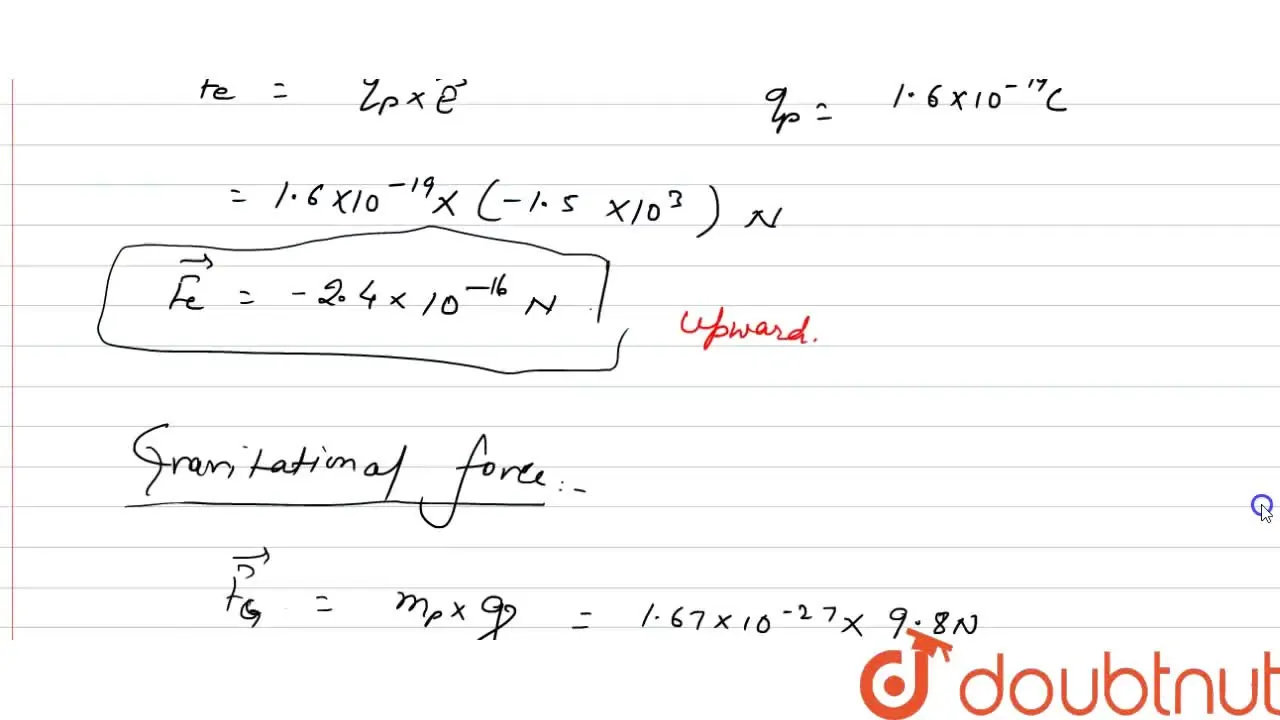 Fe = qp × E
qp = 1.6 × 10⁻¹⁹ C
= 1.6 × 10⁻¹⁹ × (-1.5 × 10³) N
Fe = -2.4 × 10⁻¹⁶ N
upward.
Gravitational force :-
FG = mp × g = 1.67 × 10⁻²⁷ × 9.8 N
doubtnut